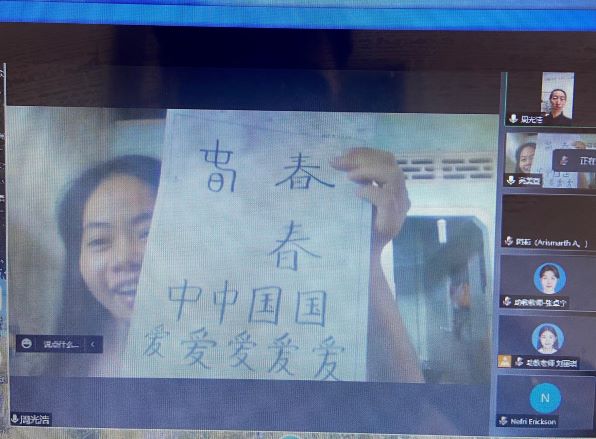 春
春
中中国国
爱爱爱爱爱
说点什么...
周光浩
周光浩
正在
(Arismarth A.)
助教教师-张卓宁
助教老师 刘丽琪
N
Nefri Erickson